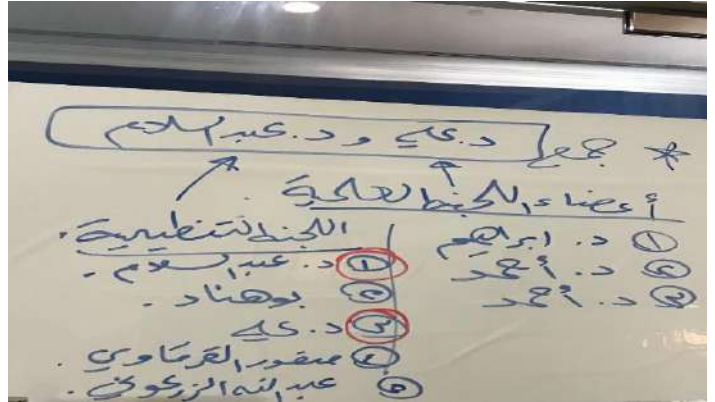 * جمع د. علي و د. عبد السلام
أعضاء اللجنة العلمية
① د. ابراهيم
② د. أحمد
③ د. أحمد
اللجنة التنظيمية.
① د. عبد السلام.
② بوهناد.
③ د. علي
④ منصور القرتاوي.
⑤ عبد الله الزرعوني.